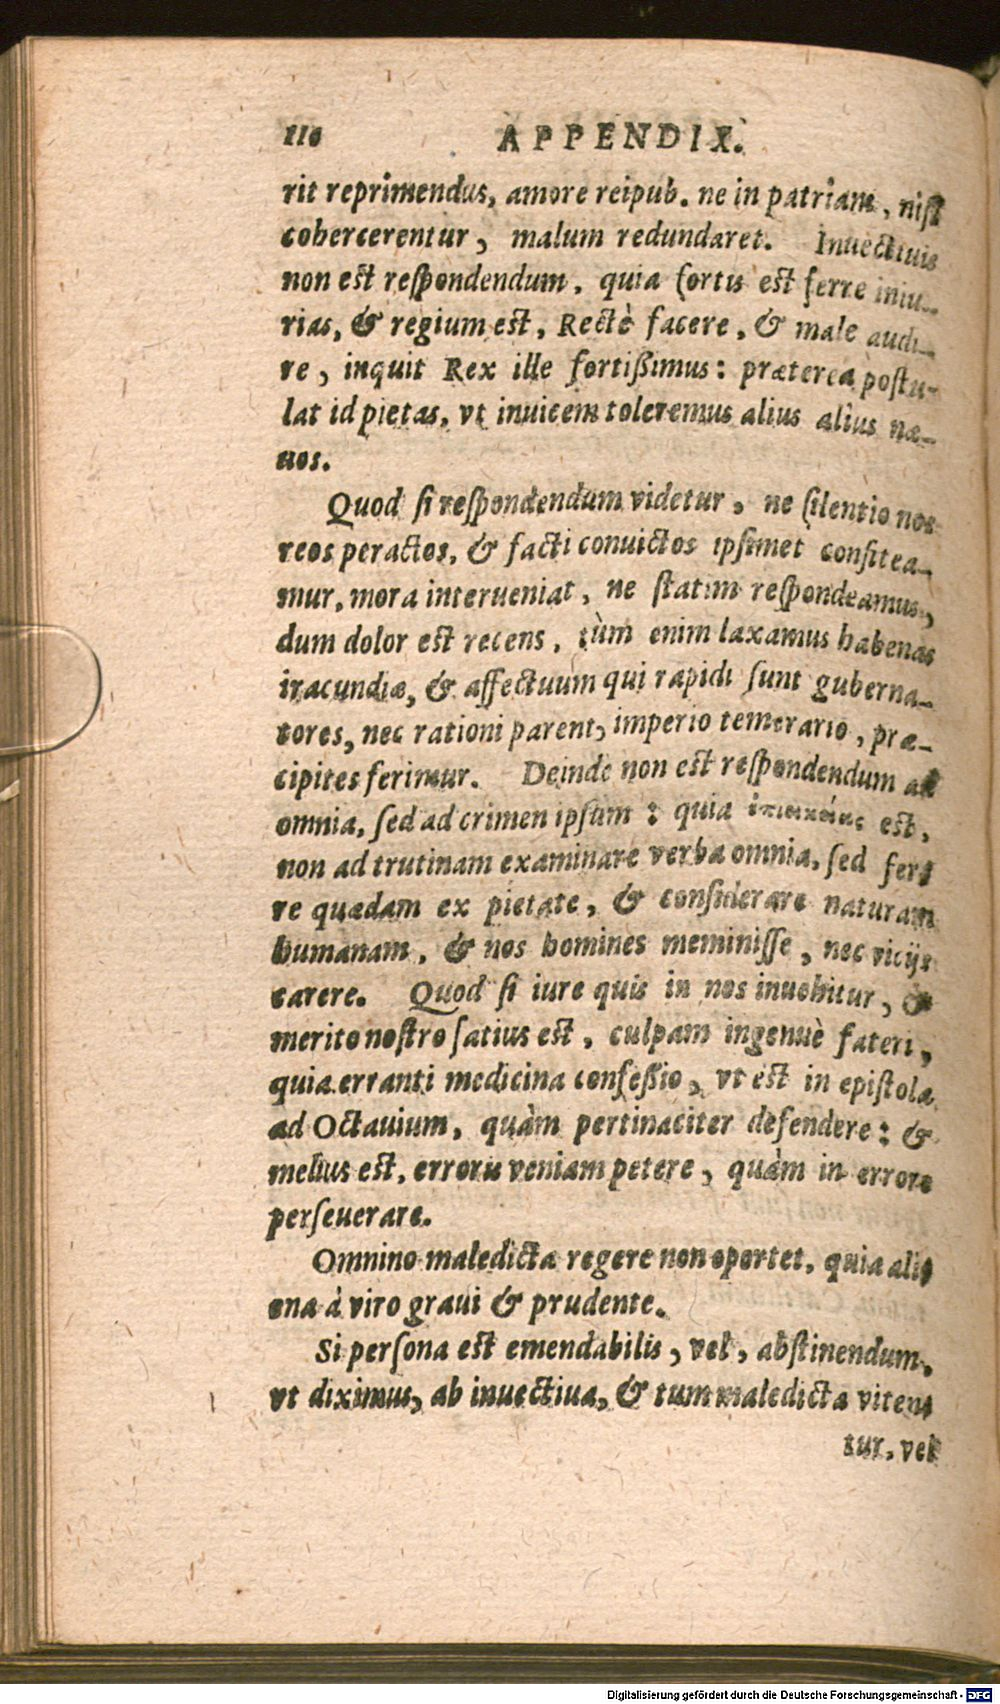 110 APPENDIX.
rit reprimendus, amore reipub. ne in patriam, nisi
cohercerentur, malum redundaret. Inuectiuis
non est respondendum, quia fortis est ferre iniu-
rias, & regium est, Rectè facere, & male audi-
re, inquit Rex ille fortissimus: præterea postu-
lat id pietas, vt inuicem toleremus alius alius næ-
uos.
Quod si respondendum videtur, ne silentio nos
reos peractos, & facti conuictos ipsimet confitea-
mur, mora interueniat, ne statim respondeamus,
dum dolor est recens, tùm enim laxamus habenas
iracundiæ, & affectuum qui rapidi sunt guberna-
tores, nec rationi parent, imperio temerario, præ-
cipites ferimur. Deinde non est respondendum ad
omnia, sed ad crimen ipsum: quia est,
non ad trutinam examinare verba omnia, sed fer-
re quædam ex pietate, & considerare naturam
humanam, & nos homines meminisse, nec vicijs
carere. Quod si iure quis in nos inuehitur, &
merito nostro satius est, culpam ingenuè fateri,
quia erranti medicina confessio, vt est in epistola
ad Octauium, quàm pertinaciter defendere: &
melius est, erroris veniam petere, quàm in errore
perseuerare.
Omnino maledicta regere non oportet, quia alie
ena à viro graui & prudente.
Si persona est emendabilis, vel, abstinendum,
vt diximus, ab inuectiua, & tum maledicta viten
tur, vel
Digitalisierung gefördert durch die Deutsche Forschungsgemeinschaft - DFG